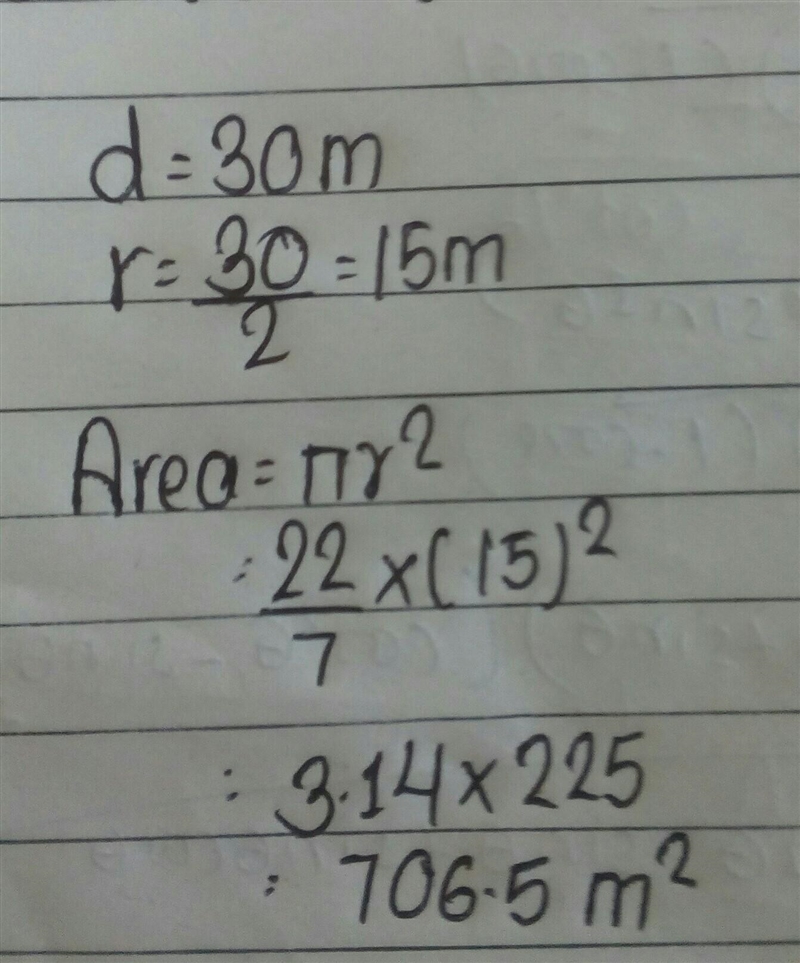 d = 30m
r = 30/2 = 15m
Area = πr²
= 22/7 × (15)²
= 3.14 × 225
= 706.5 m²